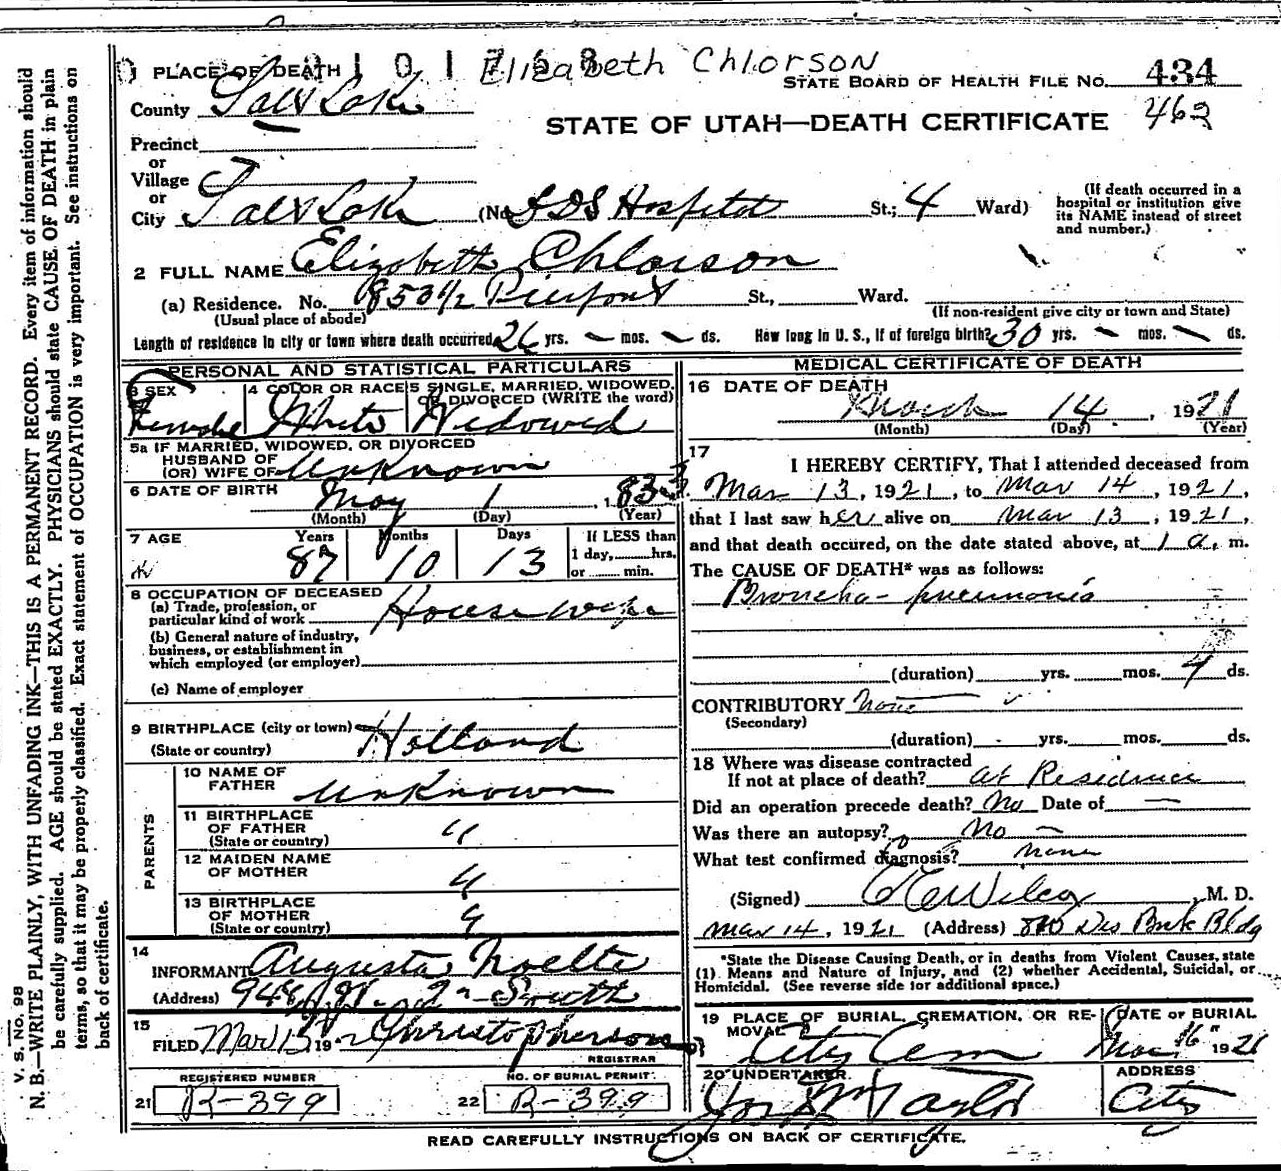 Elizabeth Chlorson
1 PLACE OF DEATH
STATE BOARD OF HEALTH FILE NO. 434
County Salt Lake
STATE OF UTAH—DEATH CERTIFICATE 462
Precinct
or
Village
or
City Salt Lake (No. LDS Hospital St.; 4 Ward)
(If death occurred in a hospital or institution give its NAME instead of street and number.)
2 FULL NAME Elizabeth Chlorson
(a) Residence. No. 853 1/2 Pierpont St., Ward.
(Usual place of abode)
(If non-resident give city or town and State)
Length of residence in city or town where death occurred 26 yrs. — mos. — ds. How long in U. S., if of foreign birth? 30 yrs. — mos. — ds.
PERSONAL AND STATISTICAL PARTICULARS
3 SEX Female
4 COLOR OR RACE White
5 SINGLE, MARRIED, WIDOWED, OR DIVORCED (WRITE the word) Widowed
5a IF MARRIED, WIDOWED, OR DIVORCED
HUSBAND OF
(OR) WIFE OF Unknown
6 DATE OF BIRTH May 1, 1833
(Month) (Day) (Year)
7 AGE Years Months Days If LESS than
87 10 13 1 day, hrs.
or min.
8 OCCUPATION OF DECEASED
(a) Trade, profession, or
particular kind of work House wife
(b) General nature of industry,
business, or establishment in
which employed (or employer)
(c) Name of employer
9 BIRTHPLACE (city or town)
(State or country) Holland
PARENTS
10 NAME OF
FATHER Unknown
11 BIRTHPLACE
OF FATHER "
(State or country)
12 MAIDEN NAME
OF MOTHER "
13 BIRTHPLACE
OF MOTHER "
(State or country)
14
INFORMANT Augusta Noelte
(Address) South
15
FILED Mar 15 19 Christopherson
REGISTRAR
REGISTERED NUMBER NO. OF BURIAL PERMIT.
21 R-399 22 R-399
MEDICAL CERTIFICATE OF DEATH
16 DATE OF DEATH
March 14, 1921
(Month) (Day) (Year)
17
I HEREBY CERTIFY, That I attended deceased from
Mar 13, 1921, to Mar 14, 1921,
that I last saw her alive on Mar 13, 1921,
and that death occured, on the date stated above, at 1 a. m.
The CAUSE OF DEATH* was as follows:
Broncho-pneumonia
(duration) yrs. mos. 4 ds.
CONTRIBUTORY None
(Secondary)
(duration) yrs. mos. ds.
18 Where was disease contracted
If not at place of death? at Residence
Did an operation precede death? No Date of —
Was there an autopsy? No —
What test confirmed diagnosis? none
(Signed) Wilcox M. D.
Mar 14, 1921 (Address) Des Bnk Bldg
*State the Disease Causing Death, or in deaths from Violent Causes, state
(1) Means and Nature of Injury, and (2) whether Accidental, Suicidal, or
Homicidal. (See reverse side for additional space.)
19 PLACE OF BURIAL, CREMATION, OR RE- DATE OF BURIAL
MOVAL City Cem Mar 16" 1921
20 UNDERTAKER. ADDRESS
Jos Wm Taylor City
READ CAREFULLY INSTRUCTIONS ON BACK OF CERTIFICATE.
V. S. No. 98
N. B.—WRITE PLAINLY, WITH UNFADING INK—THIS IS A PERMANENT RECORD. Every item of information should
be carefully supplied. AGE should be stated EXACTLY. PHYSICIANS should state CAUSE OF DEATH in plain
terms, so that it may be properly classified. Exact statement of OCCUPATION is very important. See instructions on
back of certificate.